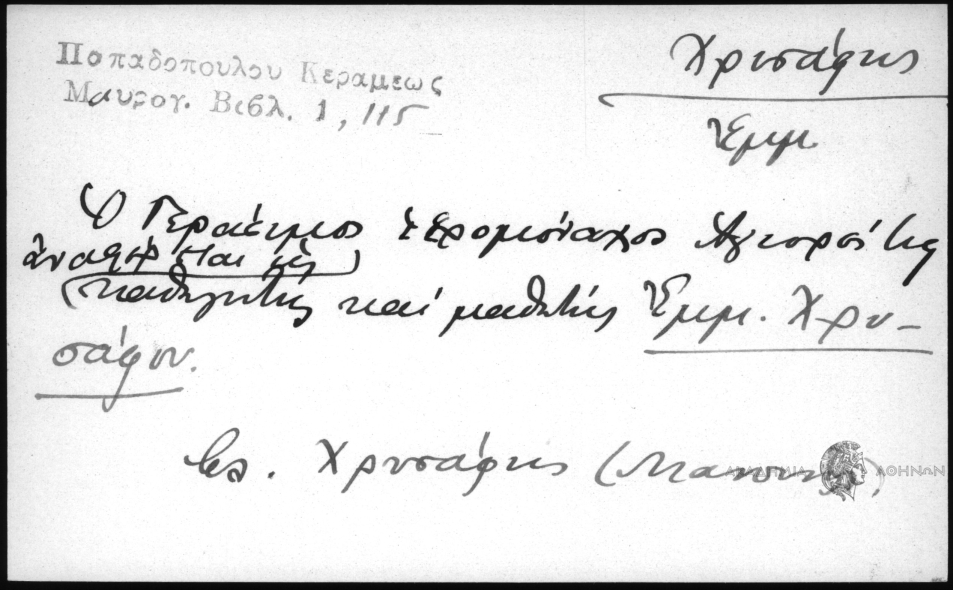 Παπαδοπούλου Κεραμέως
Μαυρογ. Βιβλ. 1, 115
Χρυσάφης
Ἐμμ.
Ὁ Γεράσιμος ἱερομόναχος Ἁγιορείτης
ἀναφέρεται ὡς
καθηγητὴς καὶ μαθητὴς Ἐμμ. Χρυ-
σάφου.
Βλ. Χρυσάφης (Μανουὴλ).
ΑΚΑΔΗΜΙΑ ΑΘΗΝΩΝ